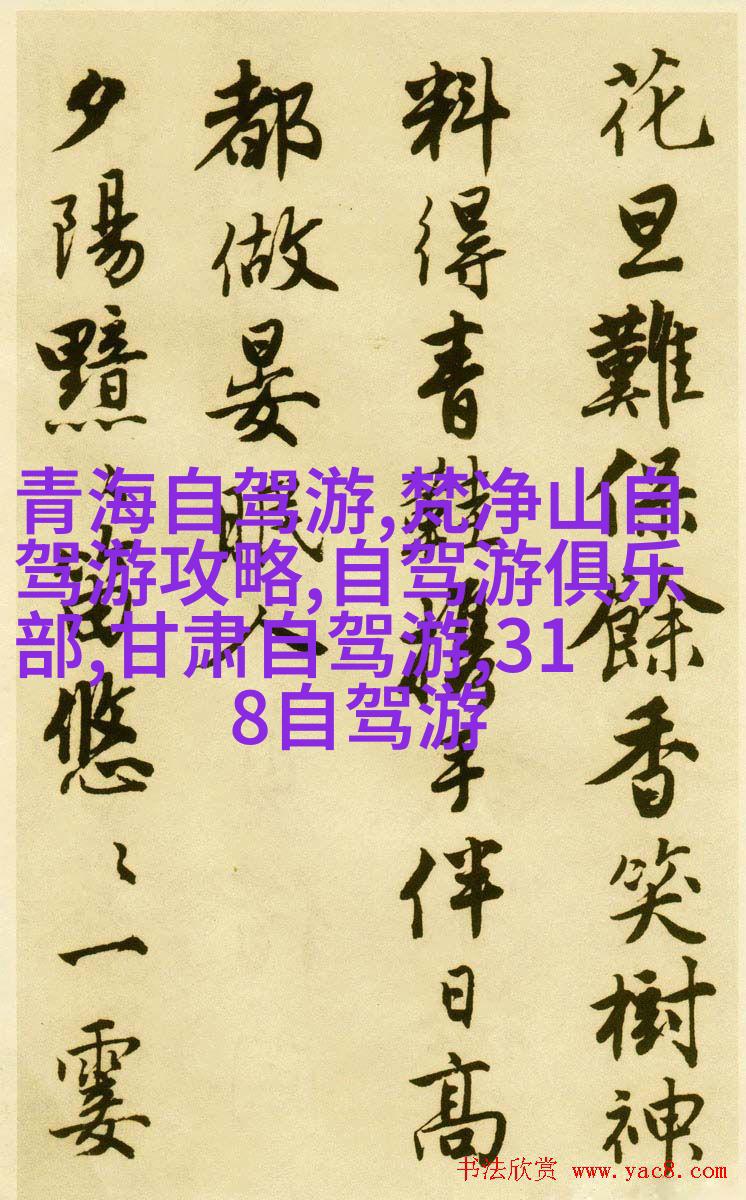 花旦難保餘香笑樹神
料得青鞋攜手伴日高
都做晏眠人
夕陽黯悠〻一霎
青海自驾游,梵净山自
驾游攻略,自驾游俱乐
部,甘肃自驾游,31
8自驾游
书法欣赏 www.yac8.com